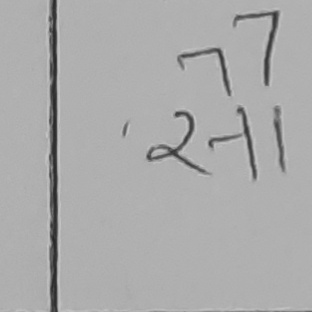 77
2-11